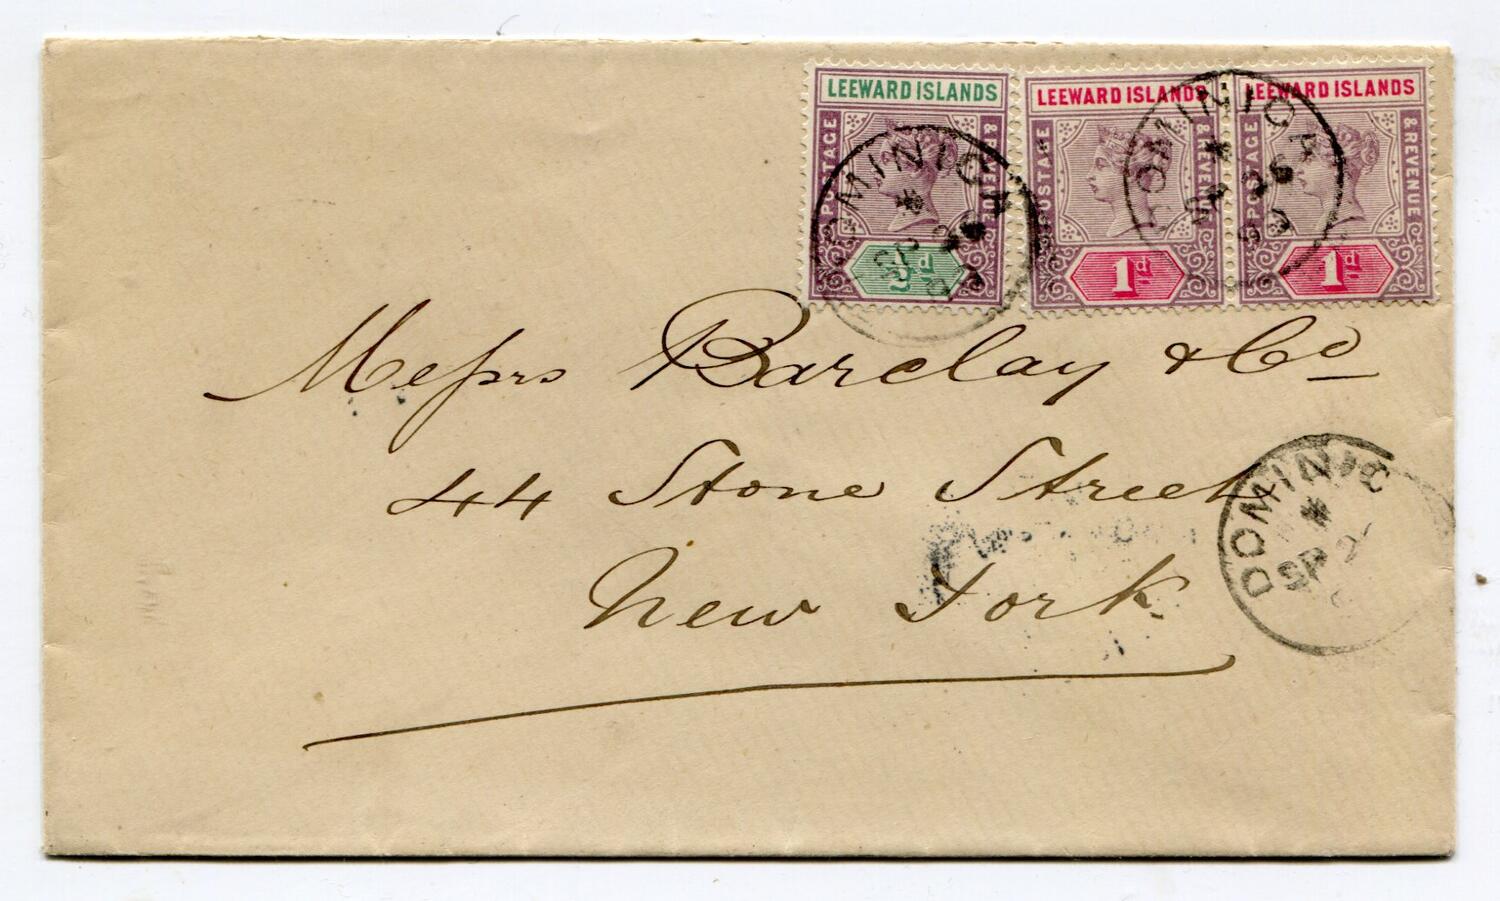 LEEWARD ISLANDS
POSTAGE & REVENUE
½d
LEEWARD ISLANDS
POSTAGE & REVENUE
1d
LEEWARD ISLANDS
POSTAGE & REVENUE
1d
DOMINICA
SP 26
DOMINICA
SP 26
92
Messrs Barclay & Co
44 Stone Street
New York
DOMINIC
SP 2